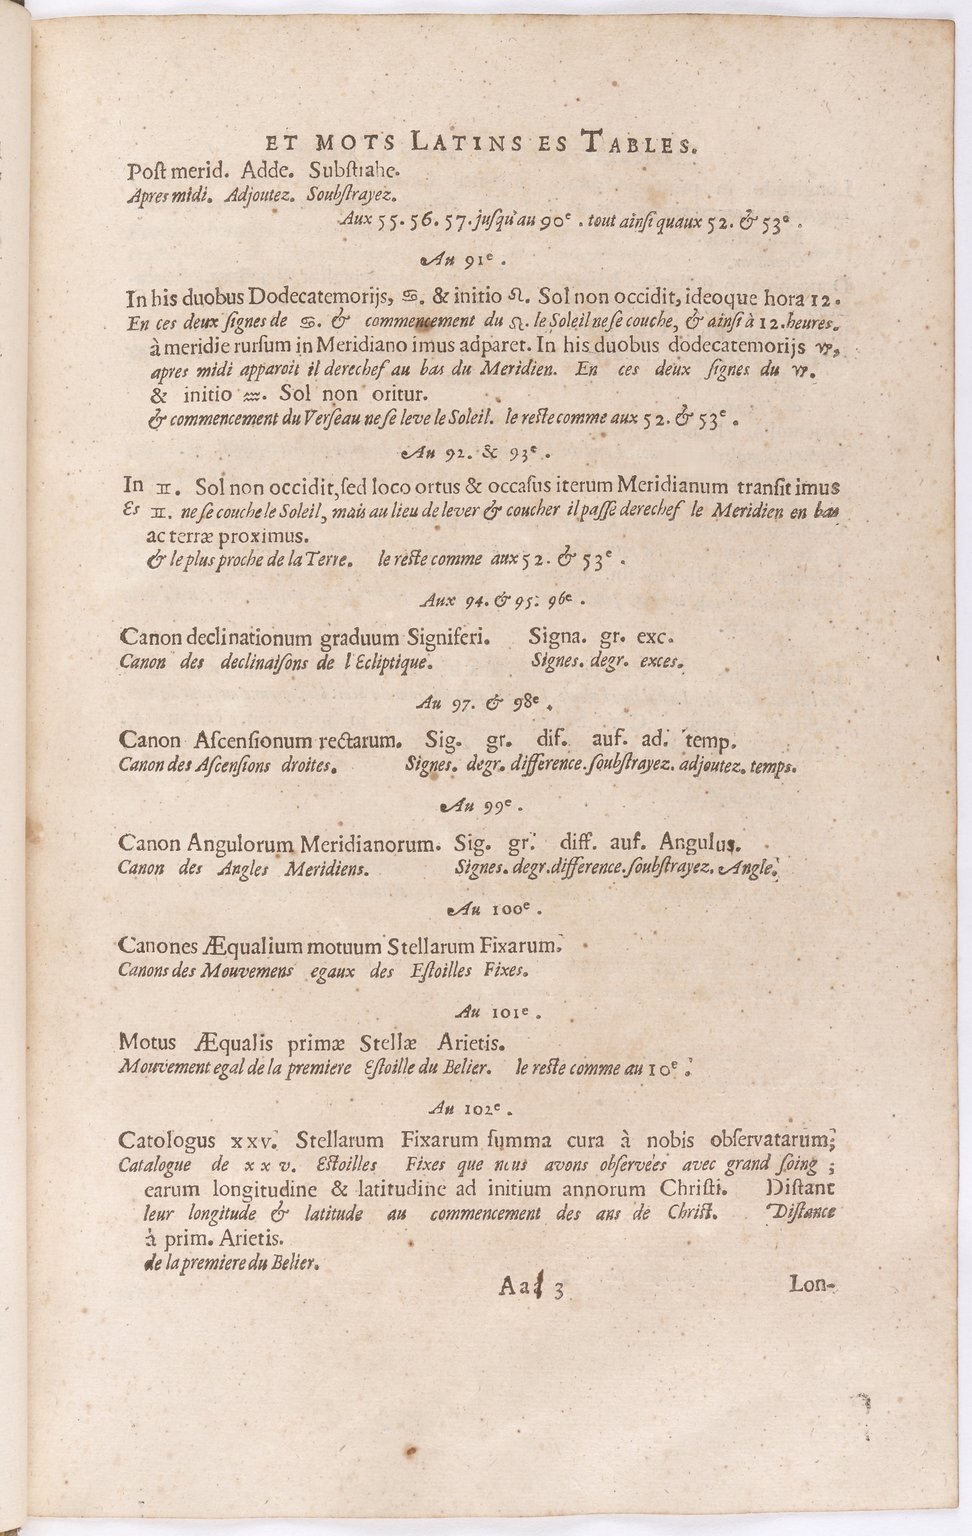 ET MOTS LATINS ES TABLES.
Poſt merid. Adde. Subſtrahe.
Apres midi. Adjoutez. Soubſtrayez.
Aux 55. 56. 57. juſqu'au 90e. tout ainſi quaux 52. & 53e.
Au 91e.
In his duobus Dodecatemorijs, ♋. & initio ♌. Sol non occidit, ideoque hora 12.
En ces deux ſignes de ♋. & commencement du ♌. le Soleil ne ſe couche, & ainſi à 12. heures.
à meridie rurſum in Meridiano imus adparet. In his duobus dodecatemorijs ♑,
apres midi apparoit il derechef au bas du Meridien. En ces deux ſignes du ♑.
& initio ♒. Sol non oritur.
& commencement du Verſeau ne ſe leve le Soleil. le reſte comme aux 52. & 53e.
Au 92. & 93e.
In ♊. Sol non occidit, ſed loco ortus & occaſus iterum Meridianum tranſit imus
Es ♊. ne ſe couche le Soleil, mais au lieu de lever & coucher il paſſe derechef le Meridien en bas
ac terræ proximus.
& le plus proche de la Terre. le reſte comme aux 52. & 53e.
Aux 94. & 95. 96e.
Canon declinationum graduum Signiferi. Signa. gr. exc.
Canon des declinaiſons de l'Ecliptique. Signes. degr. exces.
Au 97. & 98e.
Canon Aſcenſionum rectarum. Sig. gr. dif. auf. ad. temp.
Canon des Aſcenſions droites. Signes. degr. difference. ſoubſtrayez. adjoutez. temps.
Au 99e.
Canon Angulorum Meridianorum. Sig. gr. diff. auf. Angulus.
Canon des Angles Meridiens. Signes. degr. difference. ſoubſtrayez. Angle.
Au 100e.
Canones Æqualium motuum Stellarum Fixarum.
Canons des Mouvemens egaux des Eſtoilles Fixes.
Au 101e.
Motus Æqualis primæ Stellæ Arietis.
Mouvement egal de la premiere Eſtoille du Belier. le reſte comme au 10e.
Au 102e.
Catologus xxv. Stellarum Fixarum ſumma cura à nobis obſervatarum;
Catalogue de xxv. Eſtoilles Fixes que nous avons obſervées avec grand ſoing;
earum longitudine & latitudine ad initium annorum Chriſti. Diſtant
leur longitude & latitude au commencement des ans de Chriſt. Diſtance
à prim. Arietis.
de la premiere du Belier.
Aaa 3 Lon-